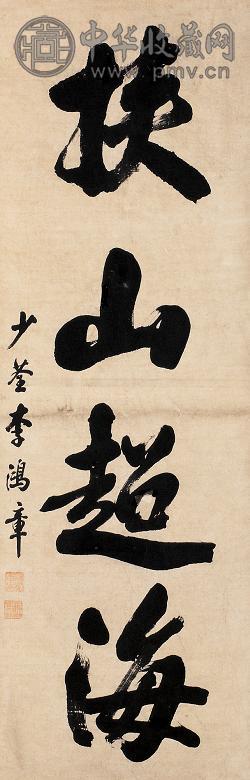 中华收藏网
www.pmv.cn
挟山超海
少荃李鴻章